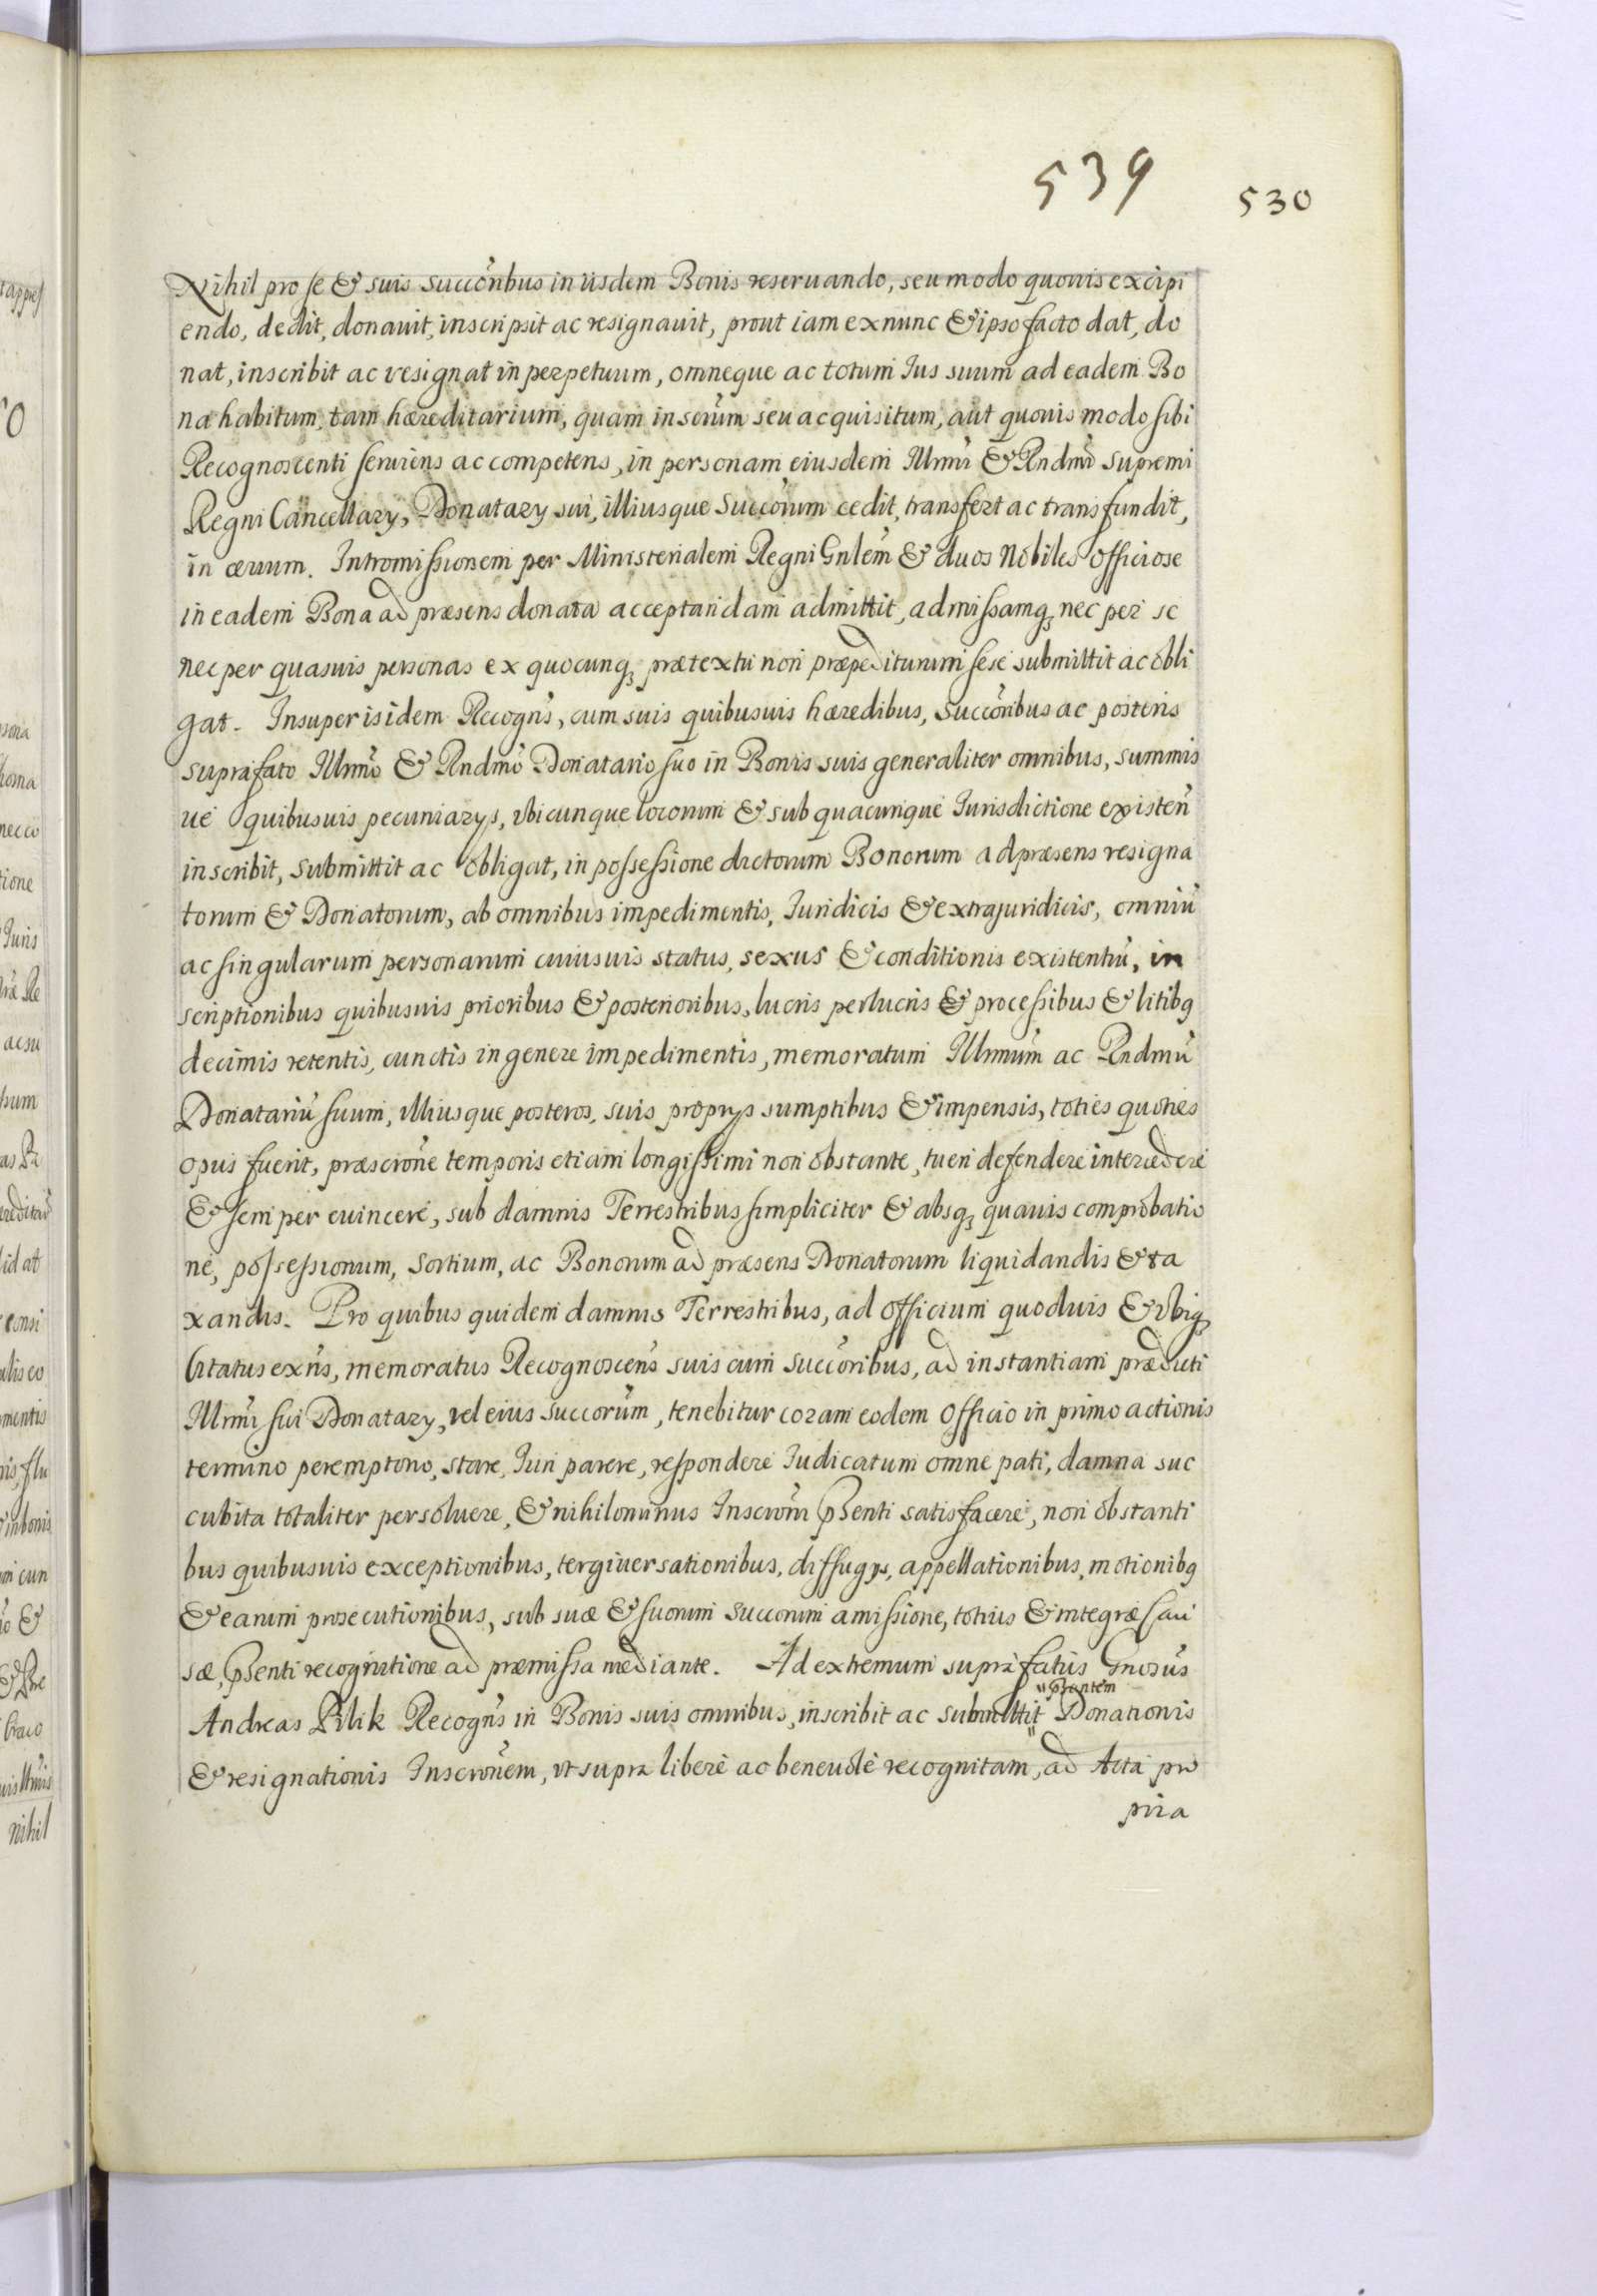 539
530
Nihil pro se & suis succōribus in iisdem Bonis reseruando, seu modo quouis excipi
endo, dedit, donauit, inscripsit ac resignauit, prout iam ex nunc & ipso facto dat, do
nat, inscribit ac resignat in perpetuum, omneque ac totum Ius suum ad eadem Bo
na habitum, tam hæreditarium, quam inscrūm seu acquisitum, aut quouis modo sibi
Recognoscenti seruiens ac competens, in personam eiusdem Illrmi & Rndmi Supremi
Regni Cancellary, Donatary sui, illiusque Succōrum cedit, transfert ac transfundit,
in æuum. Intromissionem per Ministerialem Regni Gnlem & duos Nobiles officiose
in eadem Bona ad præsens donata acceptandam admittit, admissamq, nec per se
nec per quasuis personas ex quocunq, prætextu non præpediturum sese submittit ac obli
gat. Insuper is idem Recogns, cum suis quibusuis hæredibus, Succōribus ac posteris
suprafato Illrmo & Rndmo Donatario suo in Bonis suis generaliter omnibus, summis
ue quibusuis pecuniarys, vbicunque locorum & sub quacunque Iurisdictione existeñ
inscribit, submittit ac obligat, in possessione dictorum Bonorum ad præsens resigna
torum & Donatorum, ab omnibus impedimentis, Iuridicis & extrajuridicis, omniū
ac singularum personarum cuiusuis status, sexus & conditionis existentiū, in
scriptionibus quibusuis prioribus & posterioribus, lucris perlucris & processibus & litibq
decimis retentis, cunctis in genere impedimentis, memoratum Illrmum ac Rndmū
Donatariū suum, illiusque posteros, suis proprys sumptibus & impensis, toties quoties
opus fuerit, præscrōne temporis etiam longissimi non obstante, tueri defendere intercedere
& semper euincere, sub damnis Terrestribus simpliciter & absq, quauis comprobatio
ne, possessionum, sortium, ac Bonorum ad præsens Donatorum liquidandis & ta
xandis. Pro quibus quidem damnis Terrestribus, ad officium quoduis & vbiq,
Citatus exñs, memoratus Recognoscens suis cum succōribus, ad instantiam prædicti
Illrmi sui Donatary, vel eius succorūm, tenebitur coram eodem officio in primo actionis
termino peremptorio, stare, Iuri parere, respondere Iudicatum omne pati, damna suc
cubita totaliter persoluere, & nihilominus Inscrōni pñsenti satisfacere, non obstanti
bus quibusuis exceptionibus, tergiuersationibus, diffugys, appellationibus, motionibq
& earum prosecutionibus, sub suæ & suorum succorum amissione, totius & integræ cau
sæ, pñsenti recognitione ad præmissa mediante. Ad extremum suprafatus Gnosus
"pñsentem
Andreas Pilik Recogns in Bonis suis omnibus, inscribit ac submittit " Donationis
& resignationis Inscrōnem, vt supra liberè ac beneuolè recognitam, ad Acta pro
pria